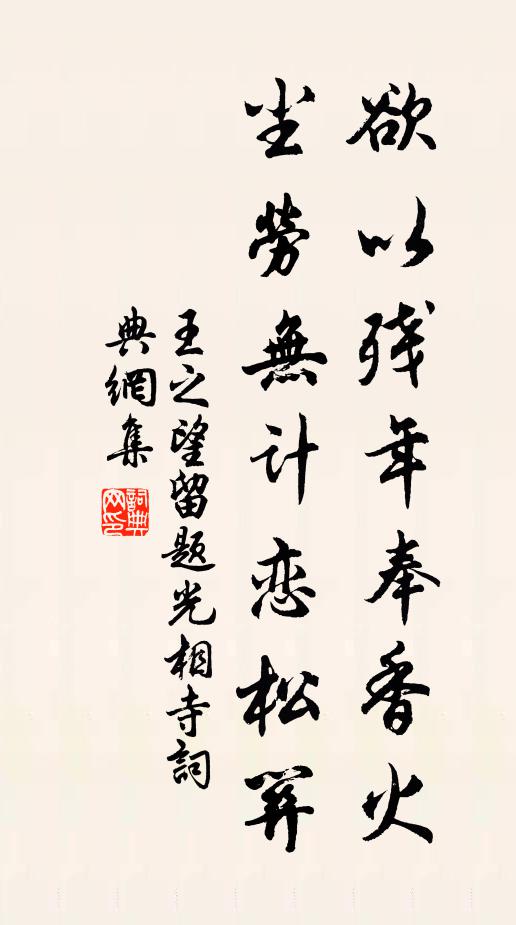 欲以残年奉香火
尘勞無计恋松關
王之望留题光相寺詞
典網集
詞典网印